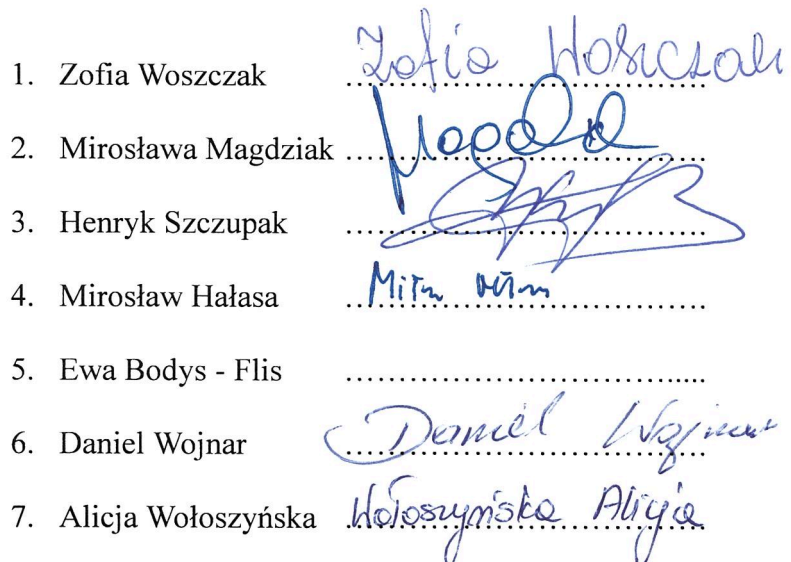 1. Zofia Woszczak .......... Zofia Woszczak
2. Mirosława Magdziak ..........
3. Henryk Szczupak ..........
4. Mirosław Hałasa ..........
5. Ewa Bodys - Flis ..........
6. Daniel Wojnar .......... Daniel Wojnar
7. Alicja Wołoszyńska .......... Wołoszyńska Alicja